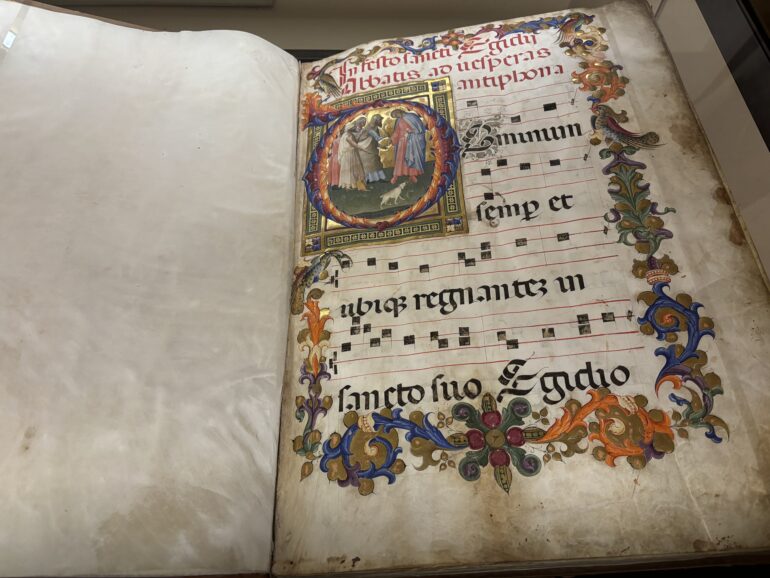 In festo sancti Egidij
Abbatis ad uesperas
antiphona
DOminum
semꝑ et
ubiqꝫ regnantez in
sancto suo Egidio